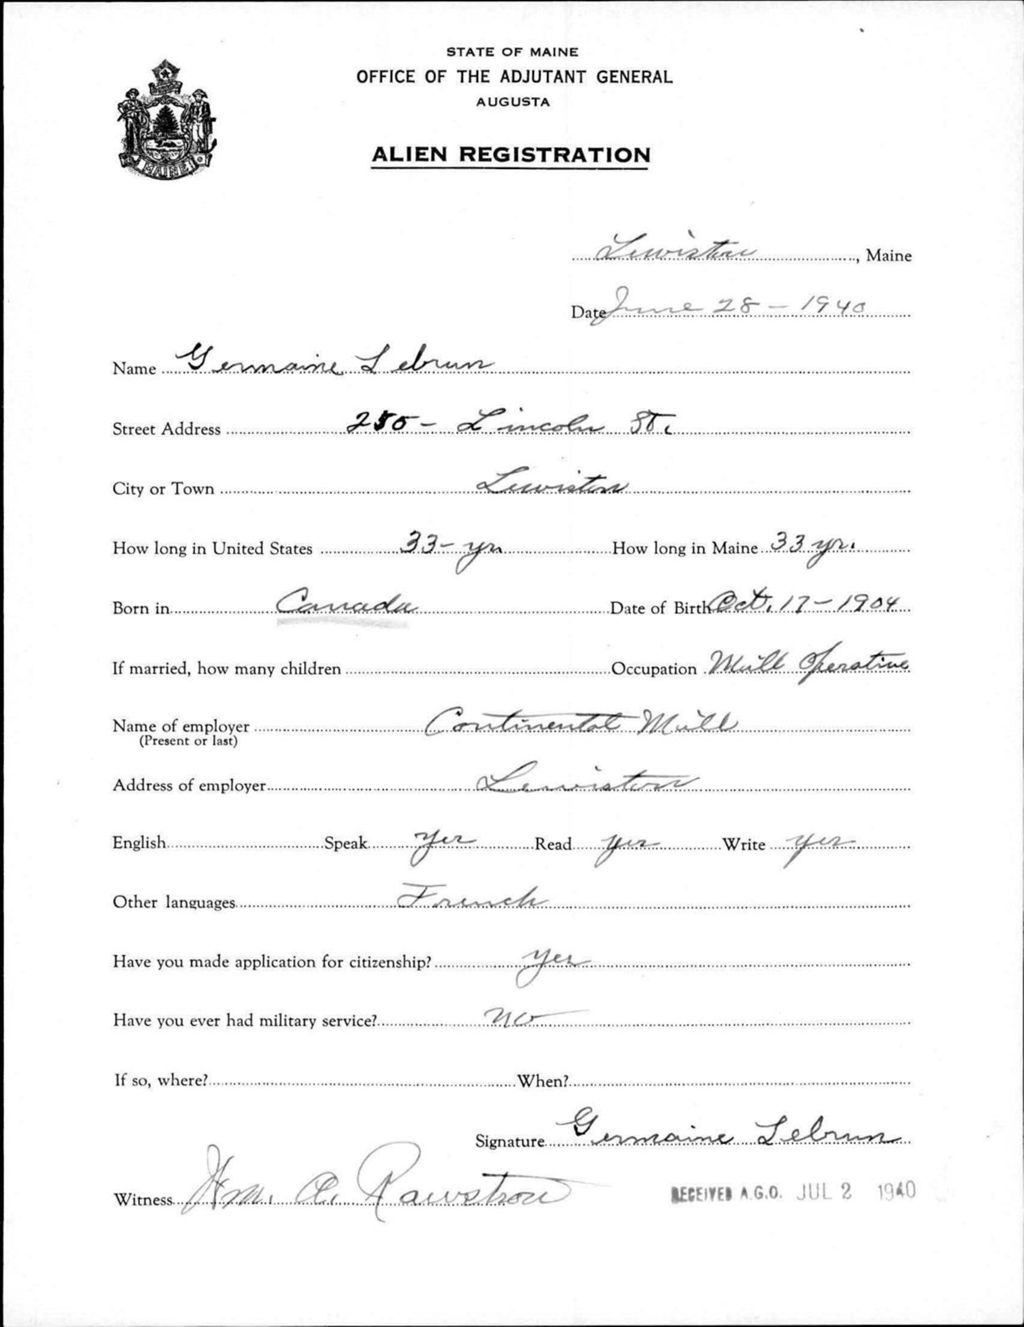 STATE OF MAINE
OFFICE OF THE ADJUTANT GENERAL
AUGUSTA
ALIEN REGISTRATION
MAINE
Lewiston, Maine
Date June 28 - 1940
Name Germaine Lebrun
Street Address 250 - Lincoln St.
City or Town Lewiston
How long in United States 33 - yr. How long in Maine 33 yr.
Born in Canada Date of Birth Oct. 17 - 1904
If married, how many children Occupation Mill Operative
Name of employer Continental Mill
(Present or last)
Address of employer Lewiston
English Speak Yes Read Yes Write Yes
Other languages French
Have you made application for citizenship? Yes
Have you ever had military service? No
If so, where? When?
Signature Germaine Lebrun
Witness Wm. A. Rawstron
RECEIVED A.G.O. JUL 2 1940